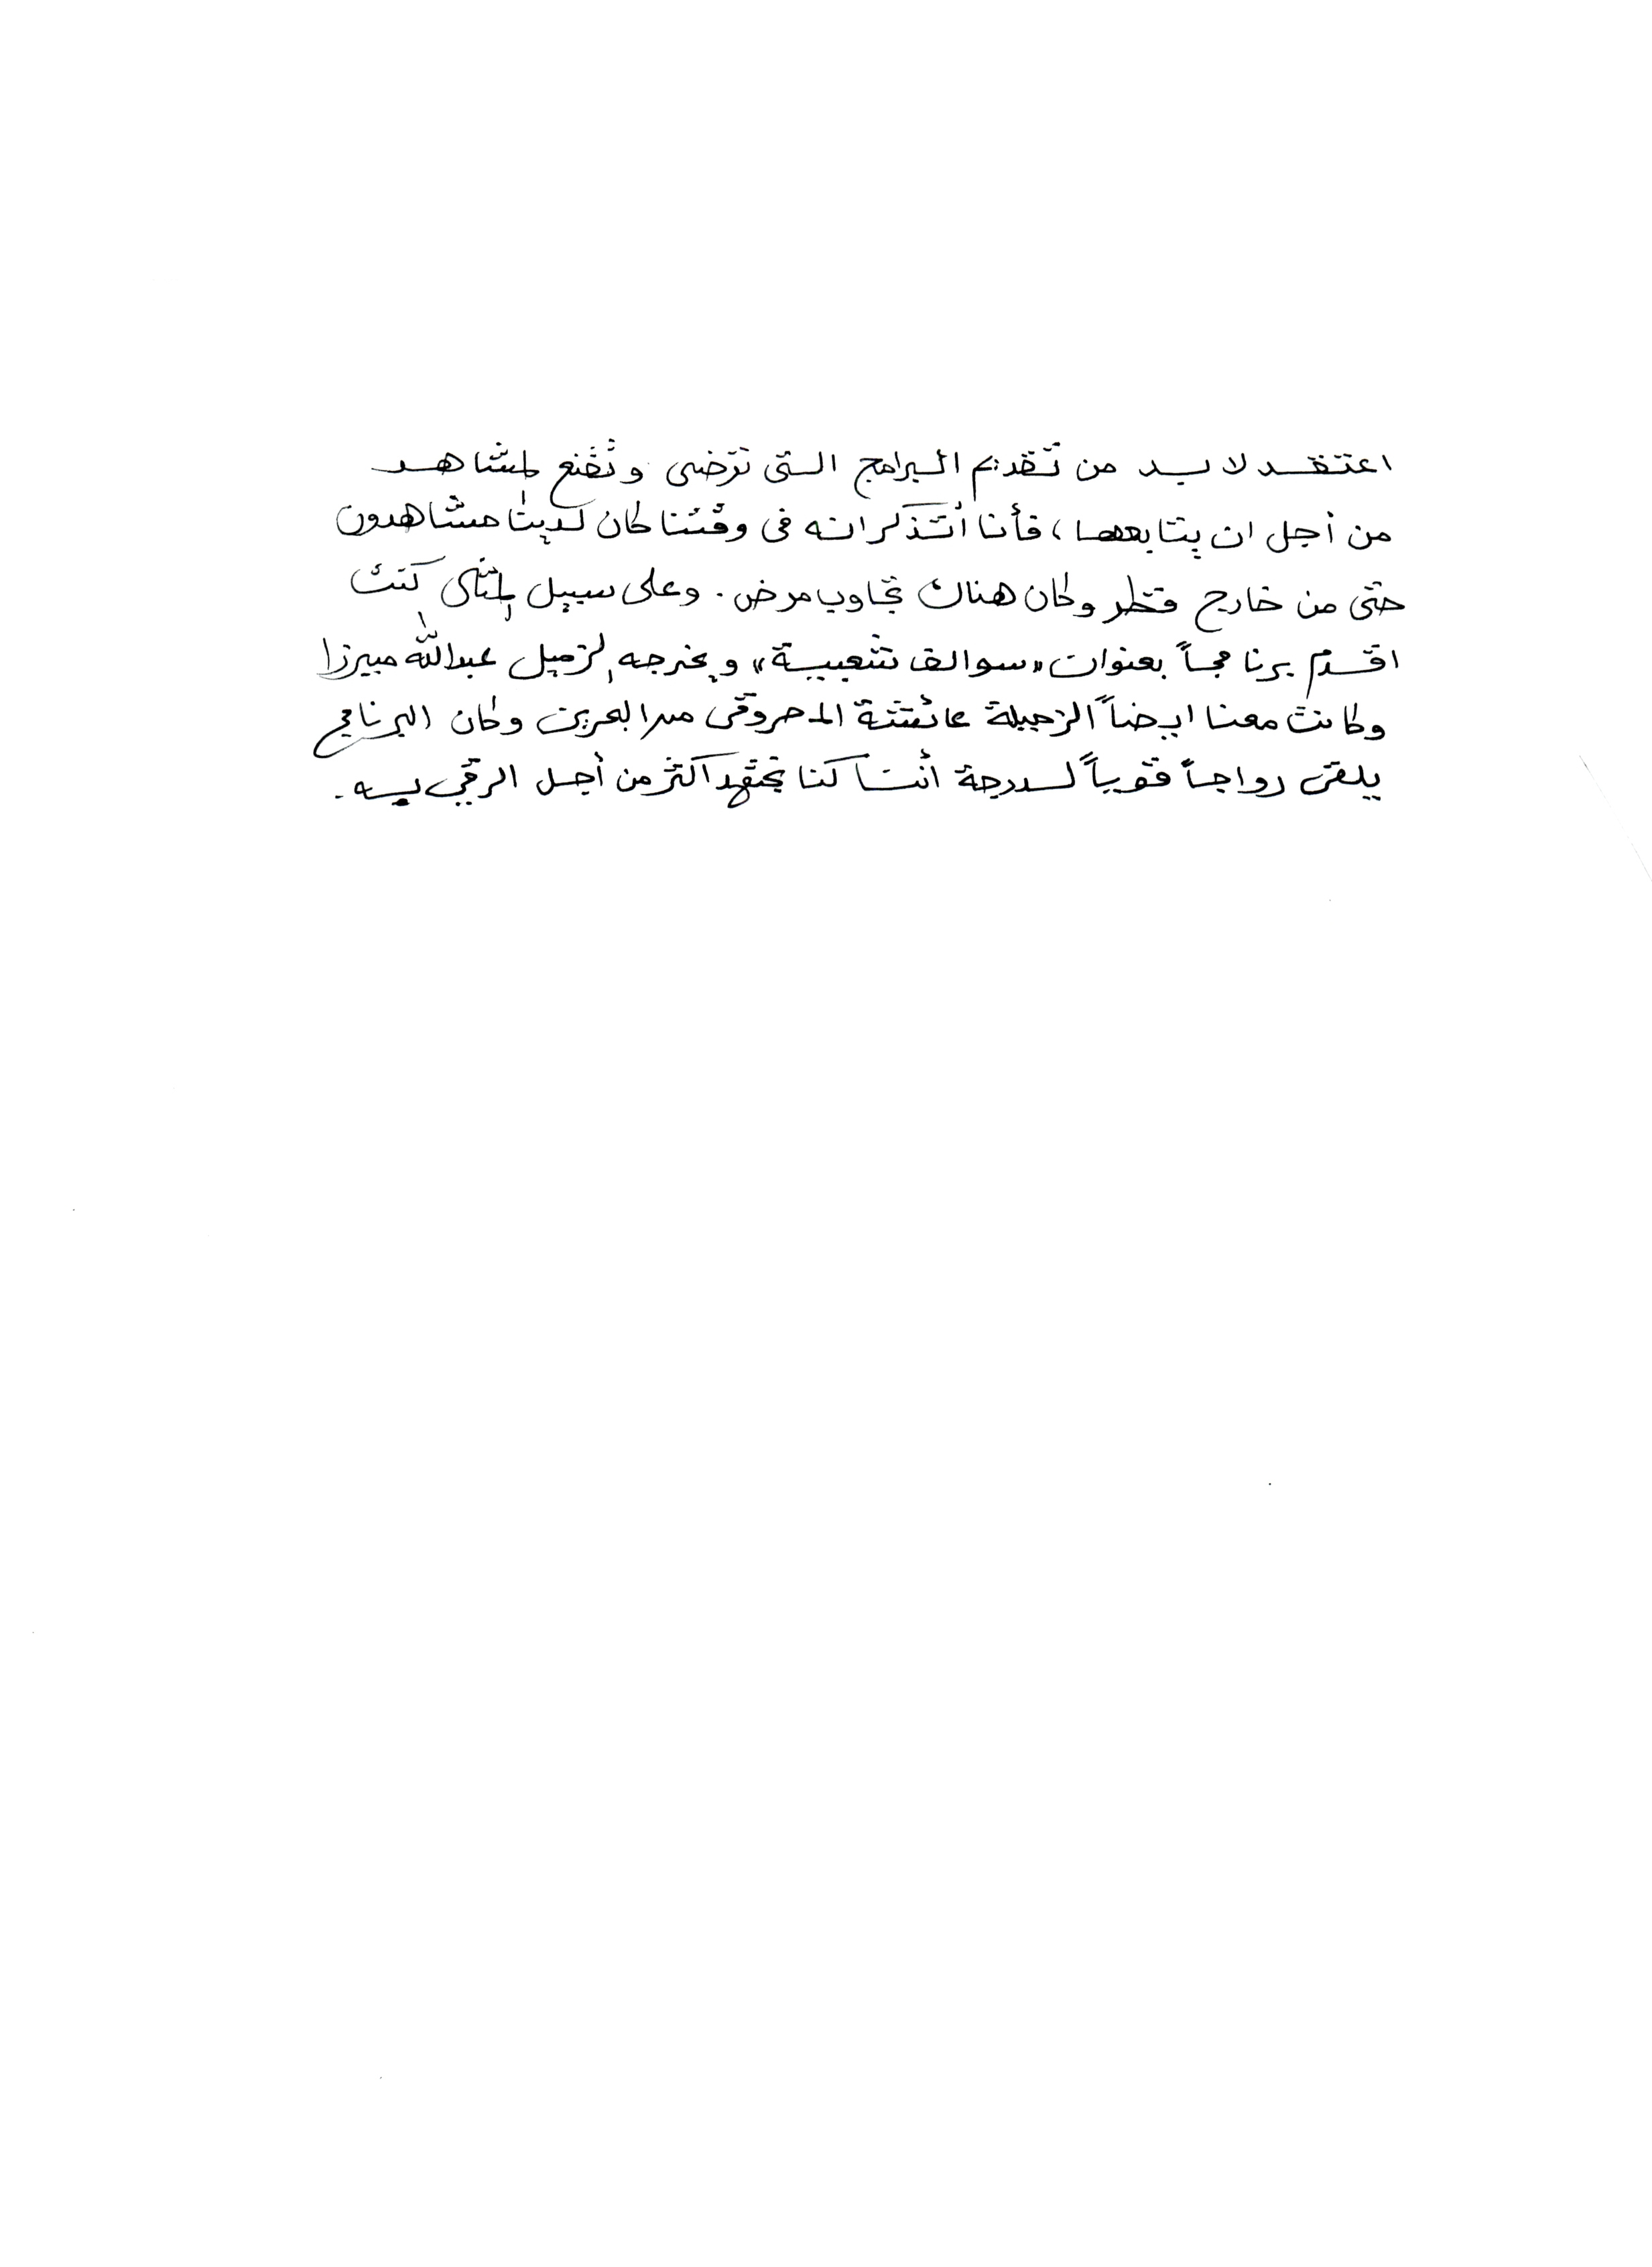 اعتقد لابد من تقديم البرامج التى ترضى وتقنع المشاهد
من أجل ان يتابعها، فأنا أتذكر انه فى وقتنا كان لدينا مشاهدون
حتى من خارج قطر وكان هناك تجاوب مرض. وعلى سبيل المثال كنت
اقدم برنامجاً بعنوان «سوالف شعبية» ويخرجه الزميل عبدالله ميرزا
وكانت معنا ايضاً الزميلة عائشة المحروقى من البحرين وكان البرنامج
يلقى رواجاً قوياً لدرجة أننا كنا نجتهد أكثر من أجل الرقي به.